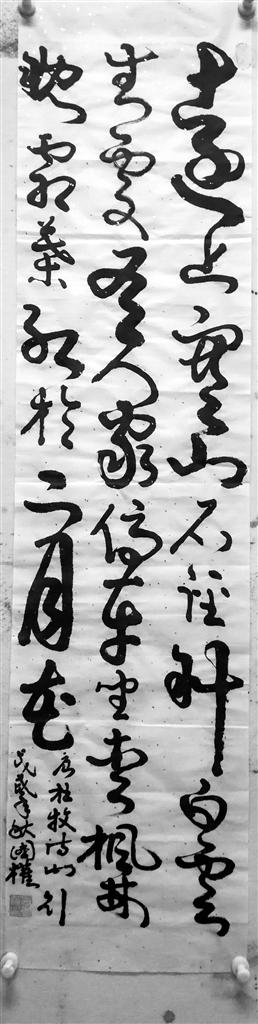 遠上寒山石徑斜白雲
生處有人家停車坐愛楓林
晚霜葉紅於二月花
唐杜牧诗山行
戊戌年